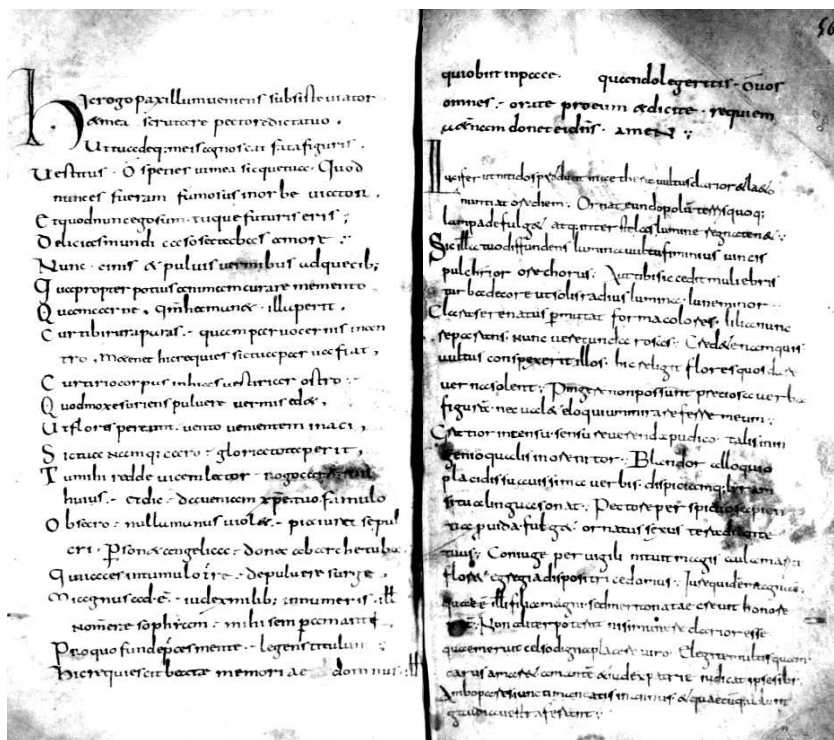 56
Hic rogo paxillum ueniens subsiste uiator
& mea scrutare pectore dicta tuo .
Ut tua deq; meis agnoscat fata figuris
Uestitus . O species ut mea sicque tua . Quod
nunc es fueram famosus in orbe uiator .
Et quod nunc ego sum . tuque futurus eris ;
Delicias mundi casso sectabas amore :
Nunc . cinis & puluis uermibus adque cib;
Quapropter potius animam curare memento
Quam carne . qm haec man& . illa perit .
Cur tibi rura paras . quam paruo cernis in an
tro . Me en& hic requies sic tua parua fiat ,
Cur tirio corpus inhias uestirier ostro :
Quod mox esuriens puluere uermis ed& ,
Ut flores pereunt uento ueniente minaci ,
Sic tua namq; caro : gloria tota perit ,
Tu mihi redde uicem lector . rogo
huius . et dic : da ueniam xpe tuo famulo
Obsecro : nulla manus uiol& . pia iura sepul
cri . Personæ angelica : donec ab arce tuba .
Qui iaces in tumulo . de puluere surge ,
Magnus ad e : iudex milib; innumeris . ill
Nomen sophiam : mihi semper amanti ,
Pro quo funde pces mente . legens titulum :
Hic requiescit beatae memoriae domnus . ill
qui obiit in pace . quando legeritis . O uos
omnes . orate pro eum & dicite . requiem
æternam donet ei dns . amen :
Lucifer ut nitidos producit in aethera uultus clarior & laeto
nuntiat ore diem . Ornat eundo polum
lampade fulg& atq; inter stellas lumine
Sic illa tuo diffundens lumina uultu femineos uincis
pulchrior ore choros . Aut tibi sic cedit muliebris
turba decore ut solis radius lumina lunae minor .
Clara serenatus permutat forma colores . lilia nunc
reparans . nunc uerecunda rosas : Cred& enim quis
uultus conspexerit illos . hic religit flores quos dare
uerna solent : Pingere non possunt pretiosa uerba
figuram nec ual& eloquium mirare fesse meum :
Gratior in tensu sensu reuerenda pudico talis in in
genio qualis in ore nitor . Blandior alloquio
placidis suauissima uerbis . despiciamq; lyram
si tua lingua sonat . Pectore perspicuo
fulg& ornatus sexus te
tuus : Coniuge peruigili nituit magis aula mariti
flor& egregia dispositrice domus :
quae e illi filia magni sed meritis natae creuit honore
patris . Non aliter poterat nisi munere clarior esse
quae meruit celso digna placere uiro . Elegit e multis quam
carus amar& amante & iudex patriae iudicat ipse sibi .
Ambo pares iuncti maneatis in annis & quaecumq; uelint
gaudia uestra ferant :